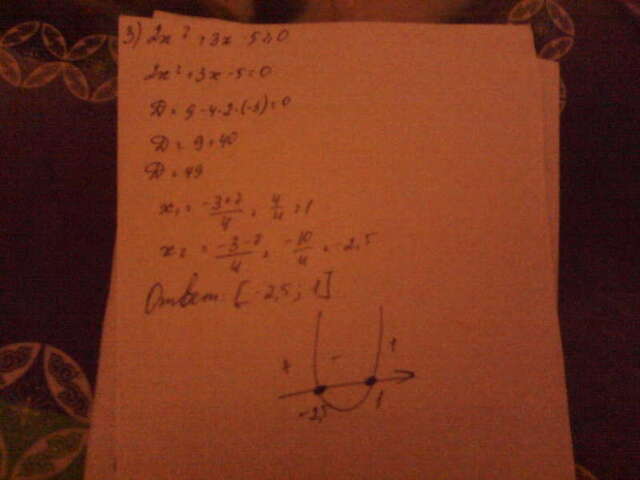 3) 2x² + 3x - 5 ≥ 0
2x² + 3x - 5 = 0
D = 9 - 4·2·(-5) = 0
D = 9 + 40
D = 49
x₁ = (-3+7)/4 = 4/4 = 1
x₂ = (-3-7)/4 = -10/4 = -2,5
Ответ: [-2,5; 1]
+ -
-2,5 1